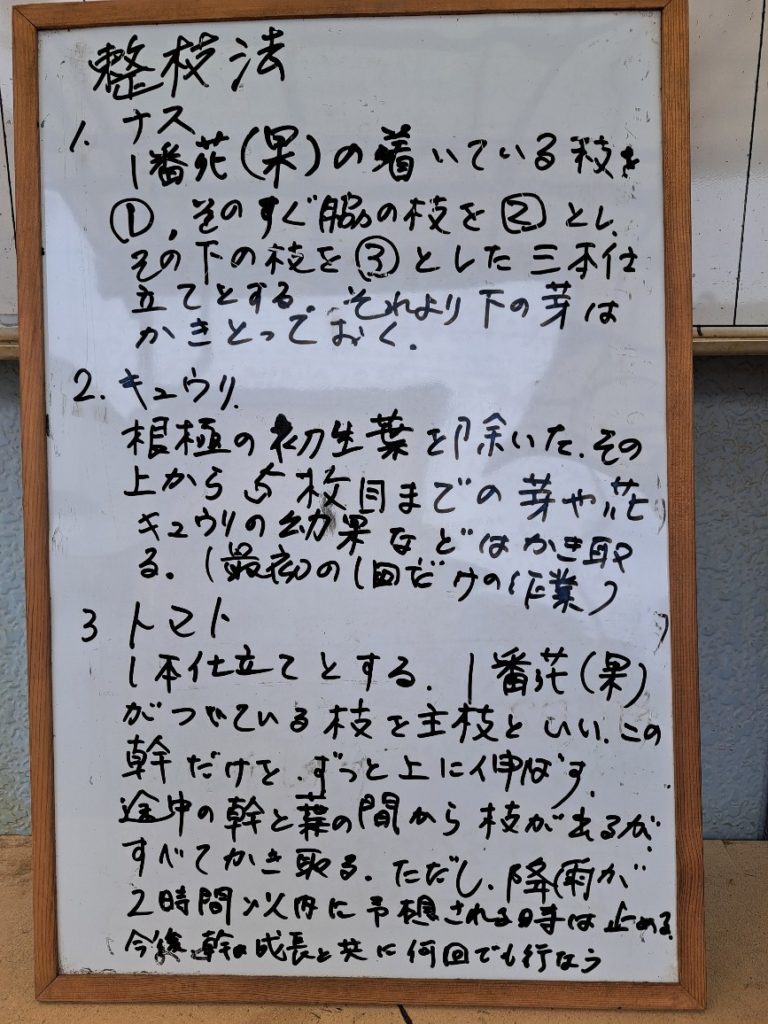 整枝法
1. ナス
1番花(果)の着いている枝を
①,そのすぐ脇の枝を②とし、
その下の枝を③とした三本仕
立てとする. それより下の芽は
かきとっておく.
2. キュウリ.
根極の初生葉を除いた.その
上から5枚目までの芽や花
キュウリの幼果などはかき取
る. (最初の1回だけの作業)
3 トマト
1本仕立てとする. 1番花(果)
がついている枝を主枝といい.この
幹だけを.ずっと上に伸ばす.
途中の幹と葉の間から枝が出るが.
すべてかき取る. ただし、降雨が
2時間以内に予想される時は止める.
今後幹の成長と共に何回でも行なう